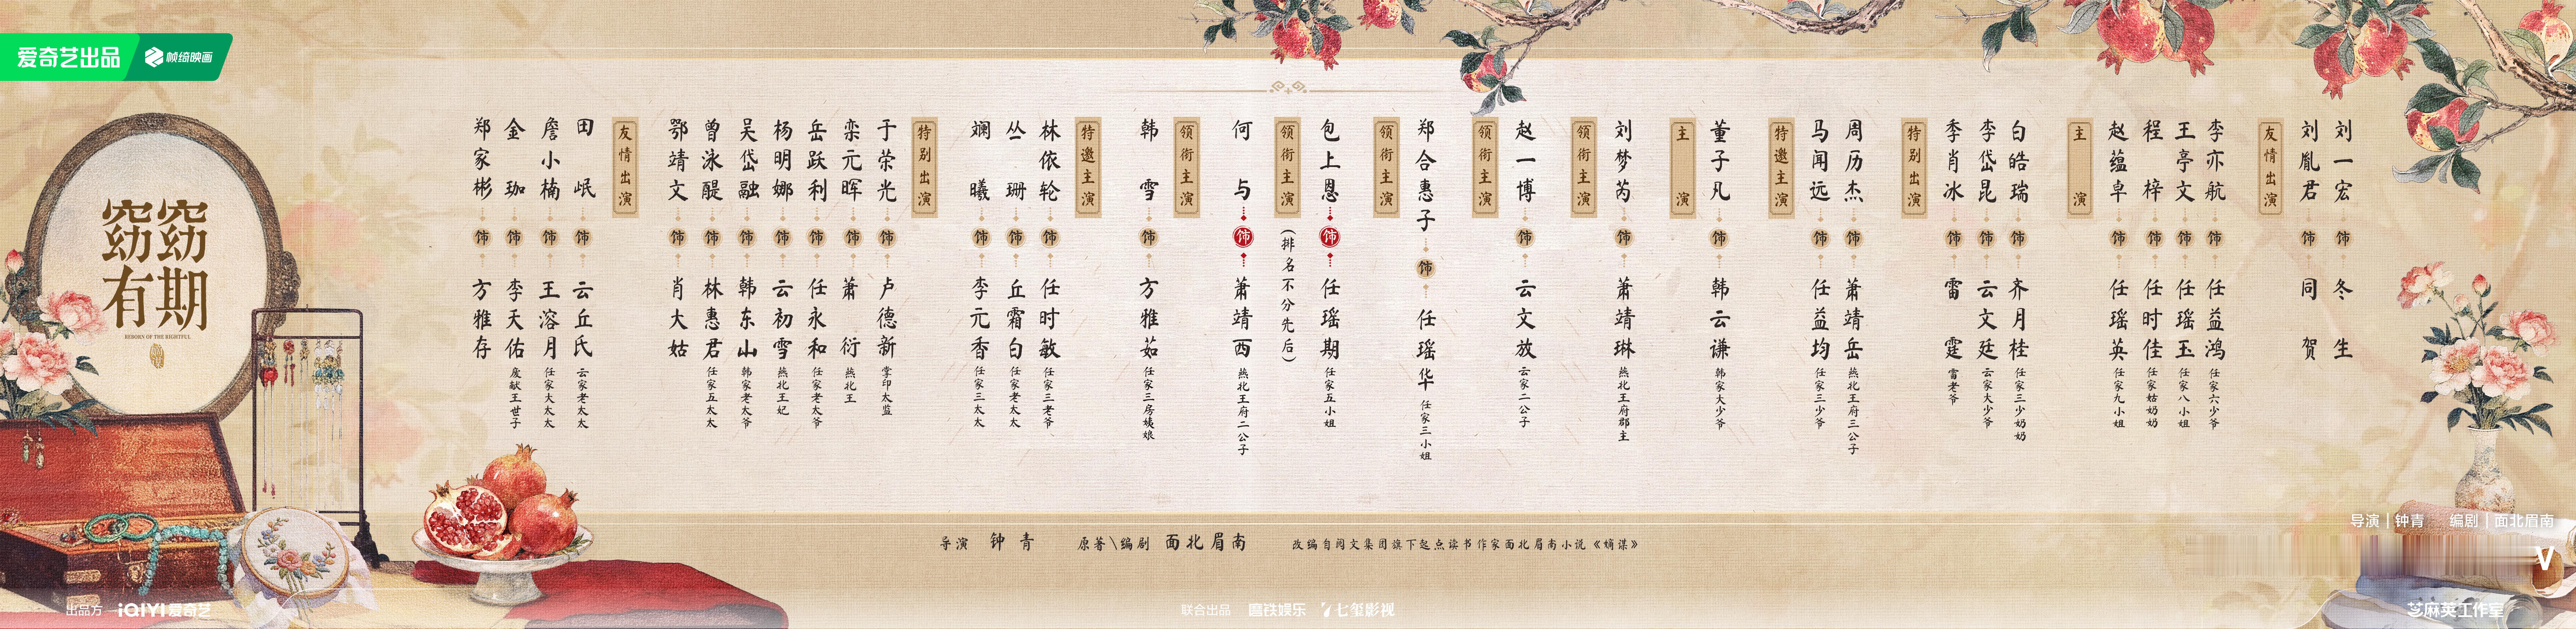 爱奇艺出品
帧绮映画
窈窈有期
REBORN OF THE RIGHTFUL
郑家彬 饰 方雅存
金珈 饰 李天佑 废献王世子
詹小楠 饰 王溶月 任家大太太
田岷 饰 云丘氏 云家老太太
友情出演
鄂靖文 饰 肖大姑
曾泳醍 饰 林惠君 任家五太太
吴岱融 饰 韩东山 韩家老太爷
杨明娜 饰 云初雪 燕北王妃
岳跃利 饰 任永和 任家老太爷
栾元晖 饰 萧衍 燕北王
于荣光 饰 卢德新 掌印太监
特别出演
娴曦 饰 李元香 任家三太太
丛珊 饰 丘霜白 任家老太太
林依轮 饰 任时敏 任家三老爷
特邀主演
韩雪 饰 方雅茹 任家三房姨娘
领衔主演
何与 饰 萧靖西 燕北王府二公子
领衔主演
(排名不分先后)
包上恩 饰 任瑶期 任家五小姐
领衔主演
郑合惠子 饰 任瑶华 任家三小姐
领衔主演
赵一博 饰 云文放 云家二公子
领衔主演
刘梦芮 饰 萧靖琳 燕北王府郡主
主演
董子凡 饰 韩云谦 韩家大少爷
特邀主演
马闻远 饰 任益均 任家三少爷
周历杰 饰 萧靖岳 燕北王府三公子
特别出演
季肖冰 饰 雷霆 雷老爷
李岱昆 饰 云文廷 云家大少爷
白皓瑞 饰 齐月桂 任家三少奶奶
主演
赵蕴卓 饰 任瑶英 任家九小姐
程梓 饰 任时佳 任家姑奶奶
王亭文 饰 任瑶玉 任家八小姐
李亦航 饰 任益鸿 任家六少爷
友情出演
刘胤君 饰 同贺
刘一宏 饰 冬生
导演 钟青 原著\编剧 面北眉南 改编自阅文集团旗下起点读书作家面北眉南小说《嫡谋》
导演|钟青 编剧|面北眉南
出品方 iQIYI爱奇艺
联合出品 磨铁娱乐 七玺影视
芝麻英工作室